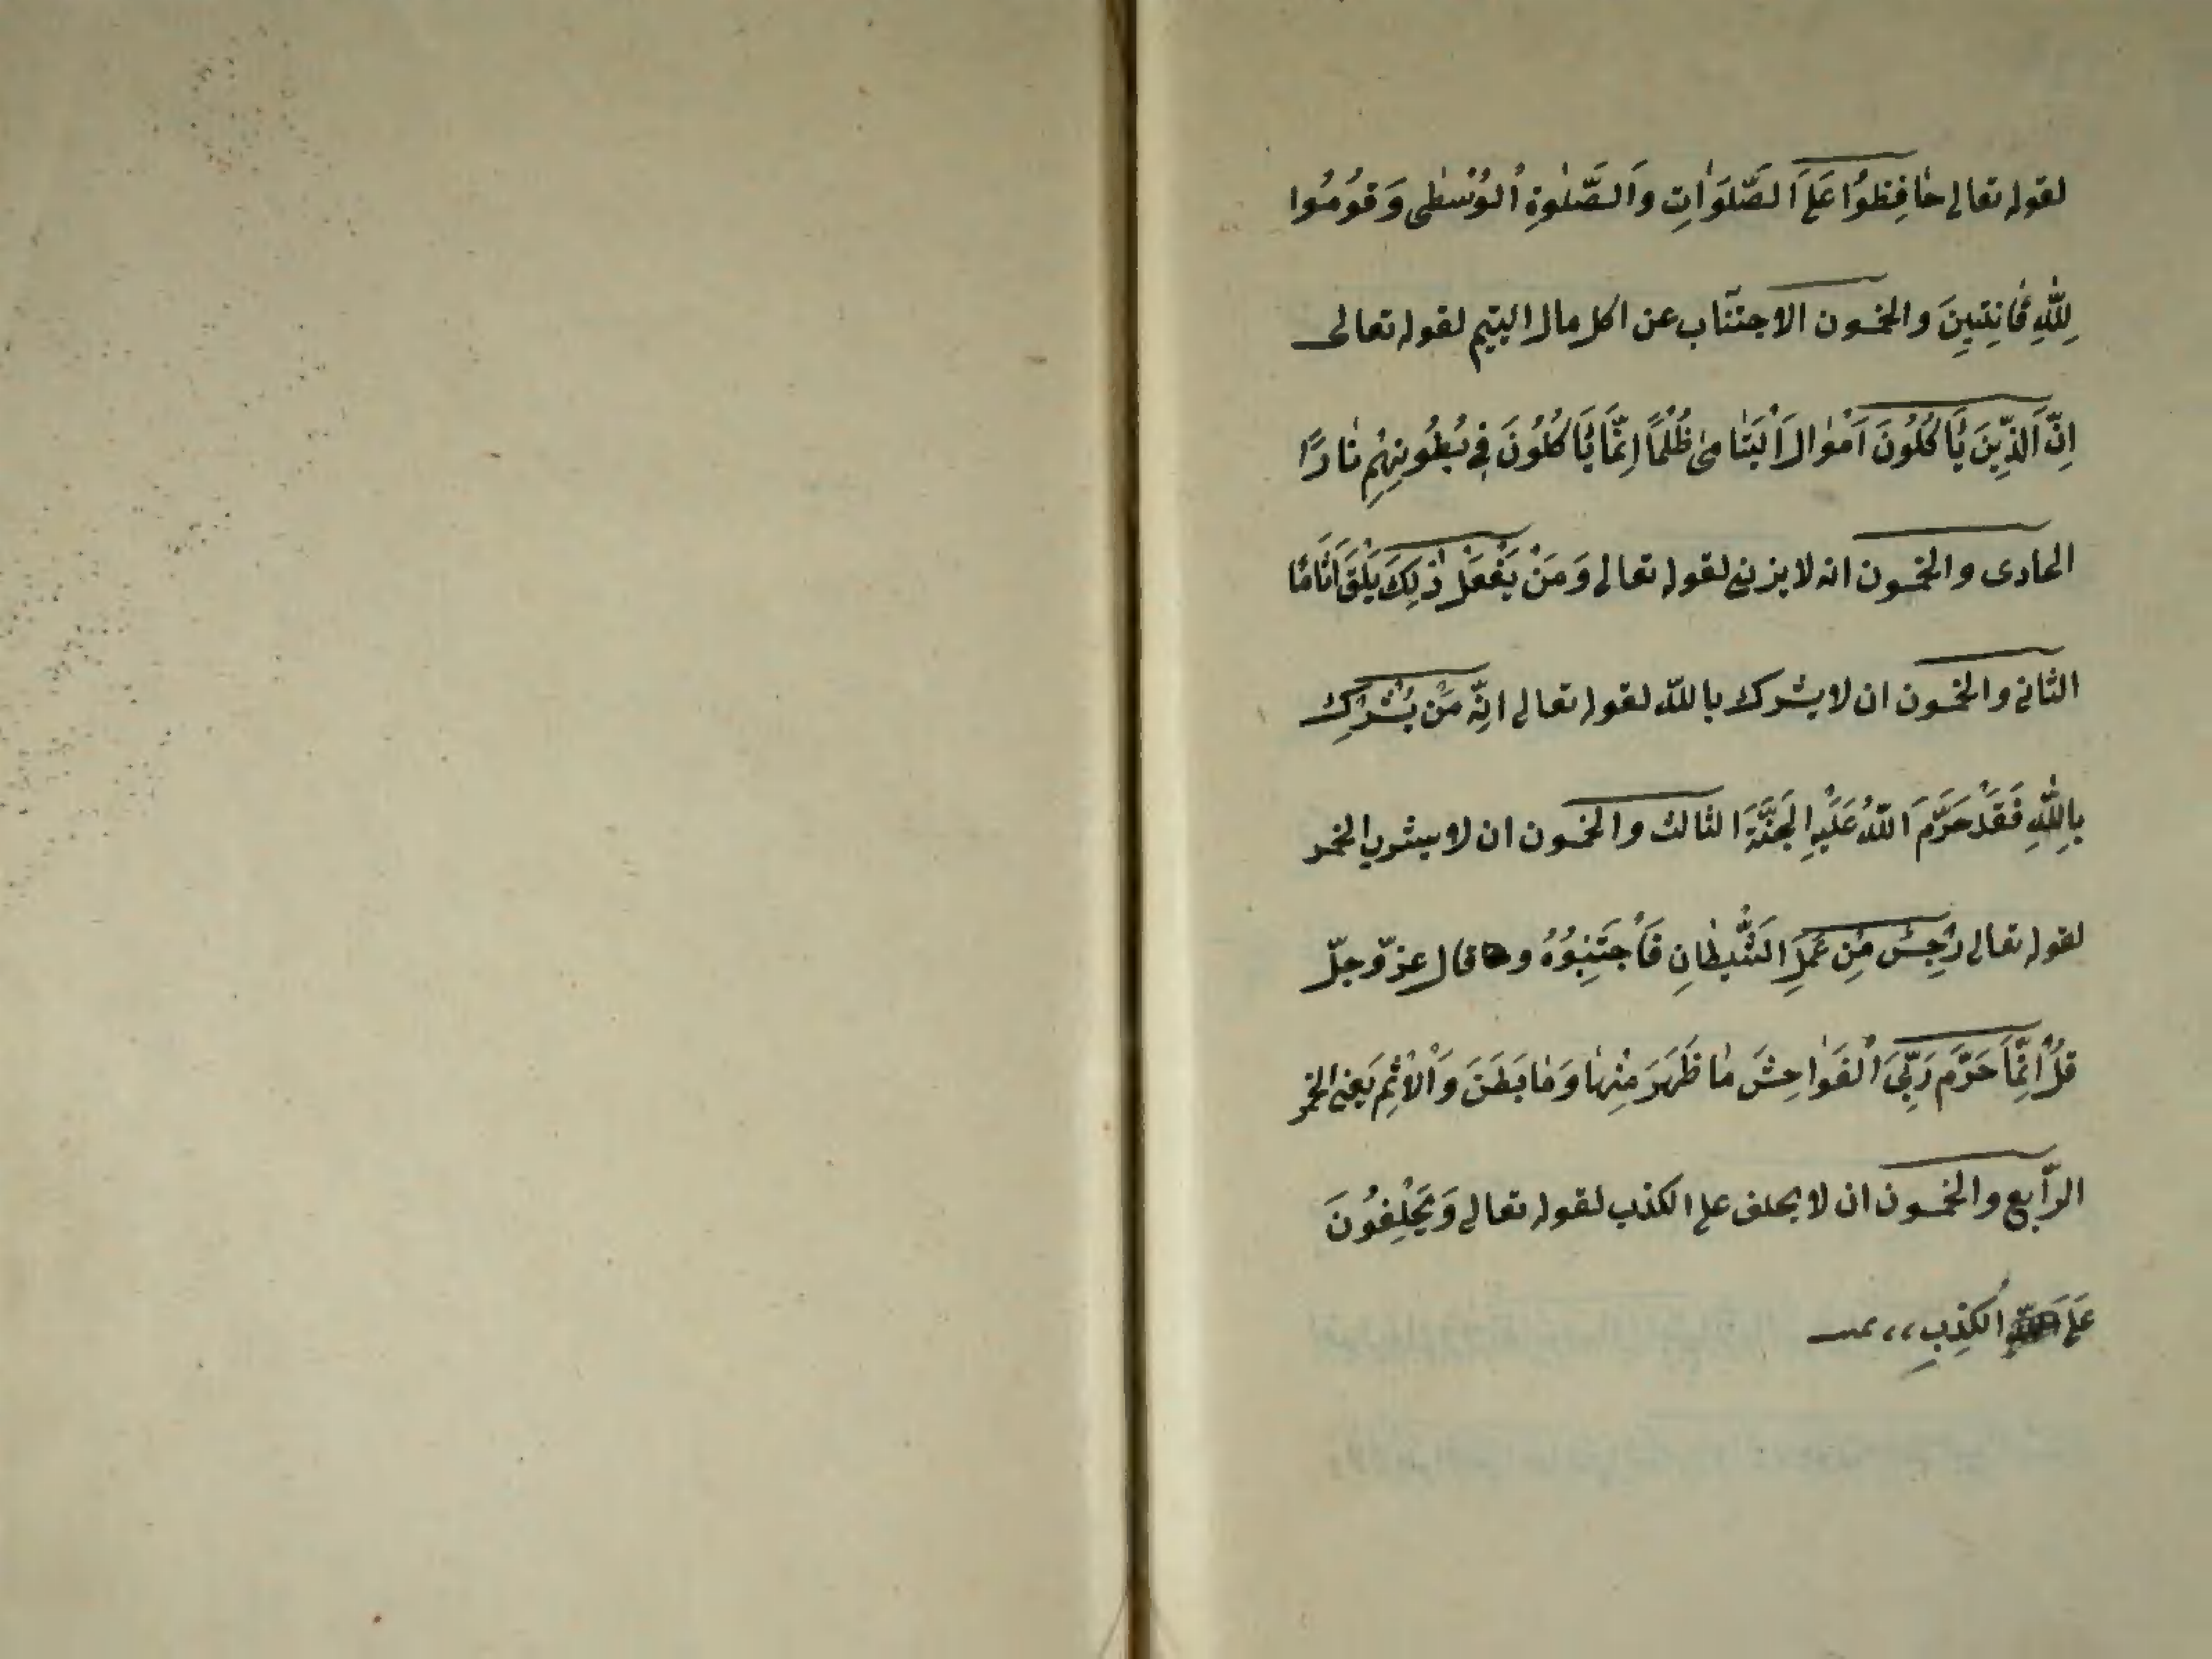 لقوله تعالى حٰافِظُوا عَلَى الصَّلَوٰاتِ وَالصَّلٰوةِ الْوُسْطٰى وَقُومُوا
لِلّٰهِ قٰانِتِينَ والخمسون الاجتناب عن اكل مال اليتيم لقوله تعالى
اِنَّ الَّذِينَ يَأْكُلُونَ اَمْوٰالَ الْيَتٰامىٰ ظُلْمًا اِنَّمَا يَأْكُلُونَ فِي بُطُونِهِمْ نٰارًا
الحادى والخمسون انه لا يزنى لقوله تعالى وَمَنْ يَفْعَلْ ذٰلِكَ يَلْقَ اَثَامًا
الثانى والخمسون ان لا يشرك بالله لقوله تعالى اِنَّهُ مَنْ يُشْرِكْ
بِاللّٰهِ فَقَدْ حَرَّمَ اللّٰهُ عَلَيْهِ الْجَنَّةَ الثالث والخمسون ان لا يشرب الخمر
لقوله تعالى رِجْسٌ مِنْ عَمَلِ الشَّيْطٰانِ فَاجْتَنِبُوهُ و قال عزّ وجلّ
قُلْ اِنَّمَا حَرَّمَ رَبِّيَ الْفَوٰاحِشَ مٰا ظَهَرَ مِنْهٰا وَمٰا بَطَنَ وَالْاِثْمَ يعنى الخمر
الرّابع والخمسون ان لا يحلف على الكذب لقوله تعالى وَيَحْلِفُونَ
عَلَى الْكَذِبِ ،،